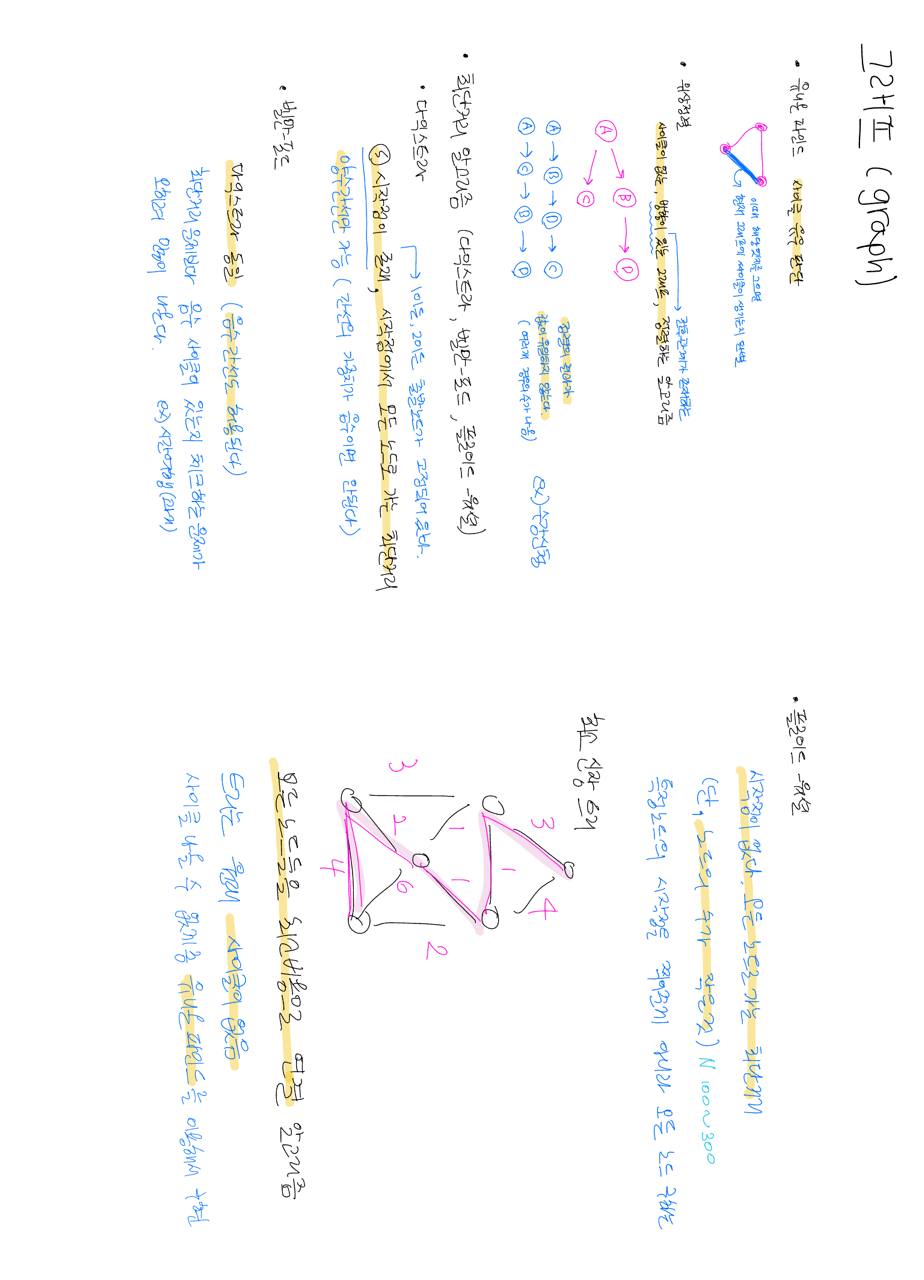 그래프 (graph)
• 유니온 파인드 사이클 유무 판단
이때 해당 엣지를 그으면
현재 그래프에 싸이클이 생기는지 판별
• 위상정렬
전후관계가 존재하는
사이클이 없는, 방향이 있는 그래프, 정렬하는 알고리즘
A → B → D
→ C
A → B → D → C
A → C → B → D
정렬의 결과가
값이 유일하지 않는다.
(여러개 경우의 수가 나옴)
ex) 수강신청
• 최단거리 알고리즘 (다익스트라, 벨만-포드, 플로이드-워셜)
• 다익스트라
→ 1이든, 2이든 출발노드가 고정되어 있다.
Ⓢ 시작점이 존재, 시작점에서 모든 노드로 가는 최단거리
양수간선만 가능 (간선의 가중치가 음수이면 안된다)
• 벨만-포드
다익스트라 동일 (음수 간선도 허용된다)
최단거리 문제보다 음수 사이클이 있는지 체크하는 문제가
오히려 많이 나온다. ex) 시간여행(과거)
• 플로이드-워셜
시작점이 없다. 모든 노드로 가는 최단거리
(단, 노드의 수가 작은것) N 100~300
특정노드의 시작점을 찍어준게 아니라 모든 노드 구하는
최소 신장 트리
3 4
1
1 1
3 2 6 2
4
모든 노드들을 최소비용으로 연결 알고리즘
트리는 원래 사이클이 없음
사이클 나올 수 없게끔 유니온 파인드를 이용해서 구현